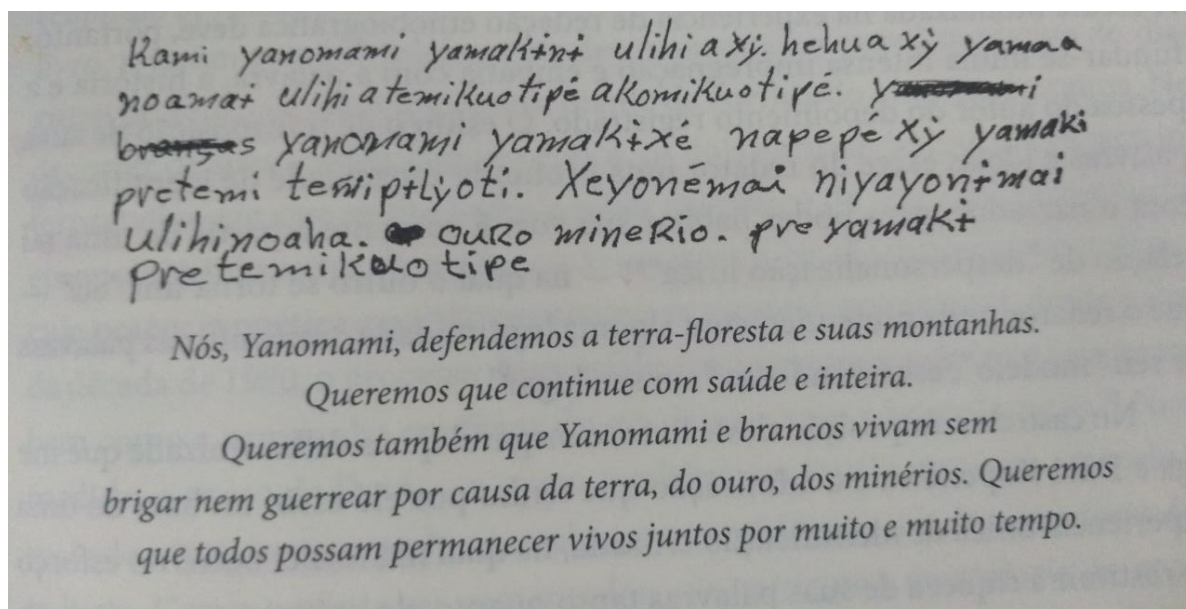 Kami yanomami yamakɨnɨ ulihi a xỳ. hehu a xỳ yamaa
noamaɨ ulihi atemikuotipë akomikuotipë.
yanomami yamakɨ xë napëpë xỳ yamaki
pretemi temipɨlɨyoti. Xeyonëmai niyayonɨmai
ulihinoaha. ouro mineRio. pre yamakɨ
pretemikuotipe
Nós, Yanomami, defendemos a terra-floresta e suas montanhas.
Queremos que continue com saúde e inteira.
Queremos também que Yanomami e brancos vivam sem
brigar nem guerrear por causa da terra, do ouro, dos minérios. Queremos
que todos possam permanecer vivos juntos por muito e muito tempo.